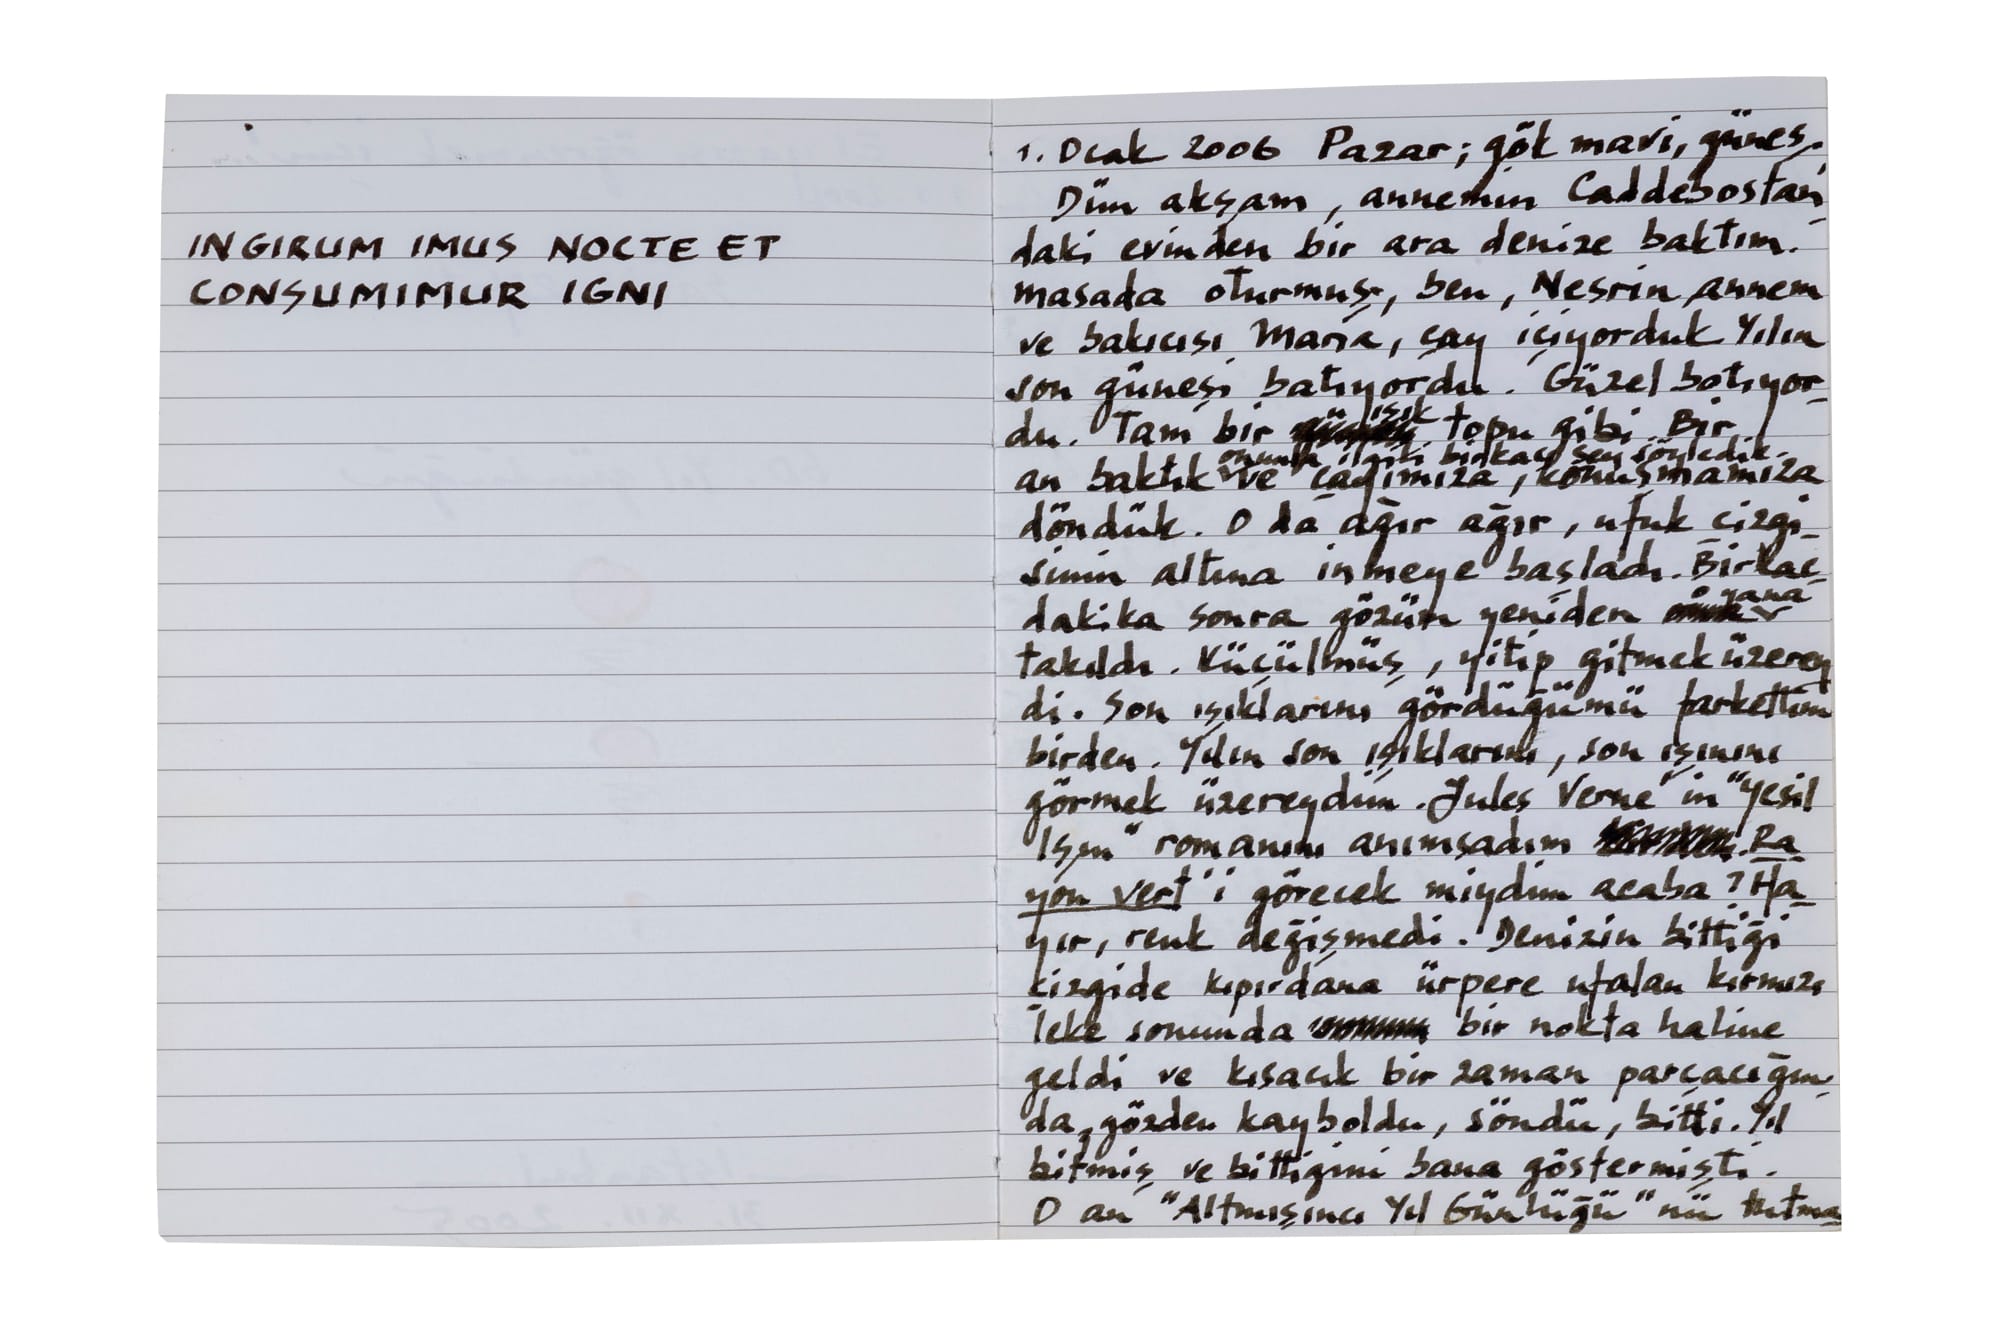 INGIRUM IMUS NOCTE ET
CONSUMIMUR IGNI
1. Ocak 2006 Pazar; gök mavi, güneş.
Dün akşam, annemin Caddebostan'
daki evinden bir ara denize baktım.
masada oturmuş, ben, Nesrin, annem
ve bakıcısı Maria, çay içiyorduk. Yılın
son güneşi batıyordu. Güzel batıyor-
du. Tam bir ışık topu gibi. Bir
onunla ilgili birkaç şey söyledik.
an baktık ve çayımıza, konuşmamıza
döndük. O da ağır ağır, ufuk çizgi-
sinin altına inmeye başladı. Birkaç
dakika sonra gözüm yeniden yana
takıldı. Küçülmüş, yitip gitmek üzerey
di. Son ışıklarını gördüğümü farkettim
birden. Yılın son ışıklarını, son ışınını
görmek üzereydim. Jules Verne'in "Yeşil
Işın" romanını anımsadım. Ra
yon vert'i görecek miydim acaba? Ha
yır, renk değişmedi. Denizin bittiği
çizgide kıpırdana ürpere ufalan kırmızı
leke sonunda bir nokta haline
geldi ve kısacık bir zaman parçacığın
da, gözden kayboldu, söndü, bitti. Yıl
bitmiş ve bittiğini bana göstermişti.
O an "Altmışıncı Yıl Günlüğü"nü tutma